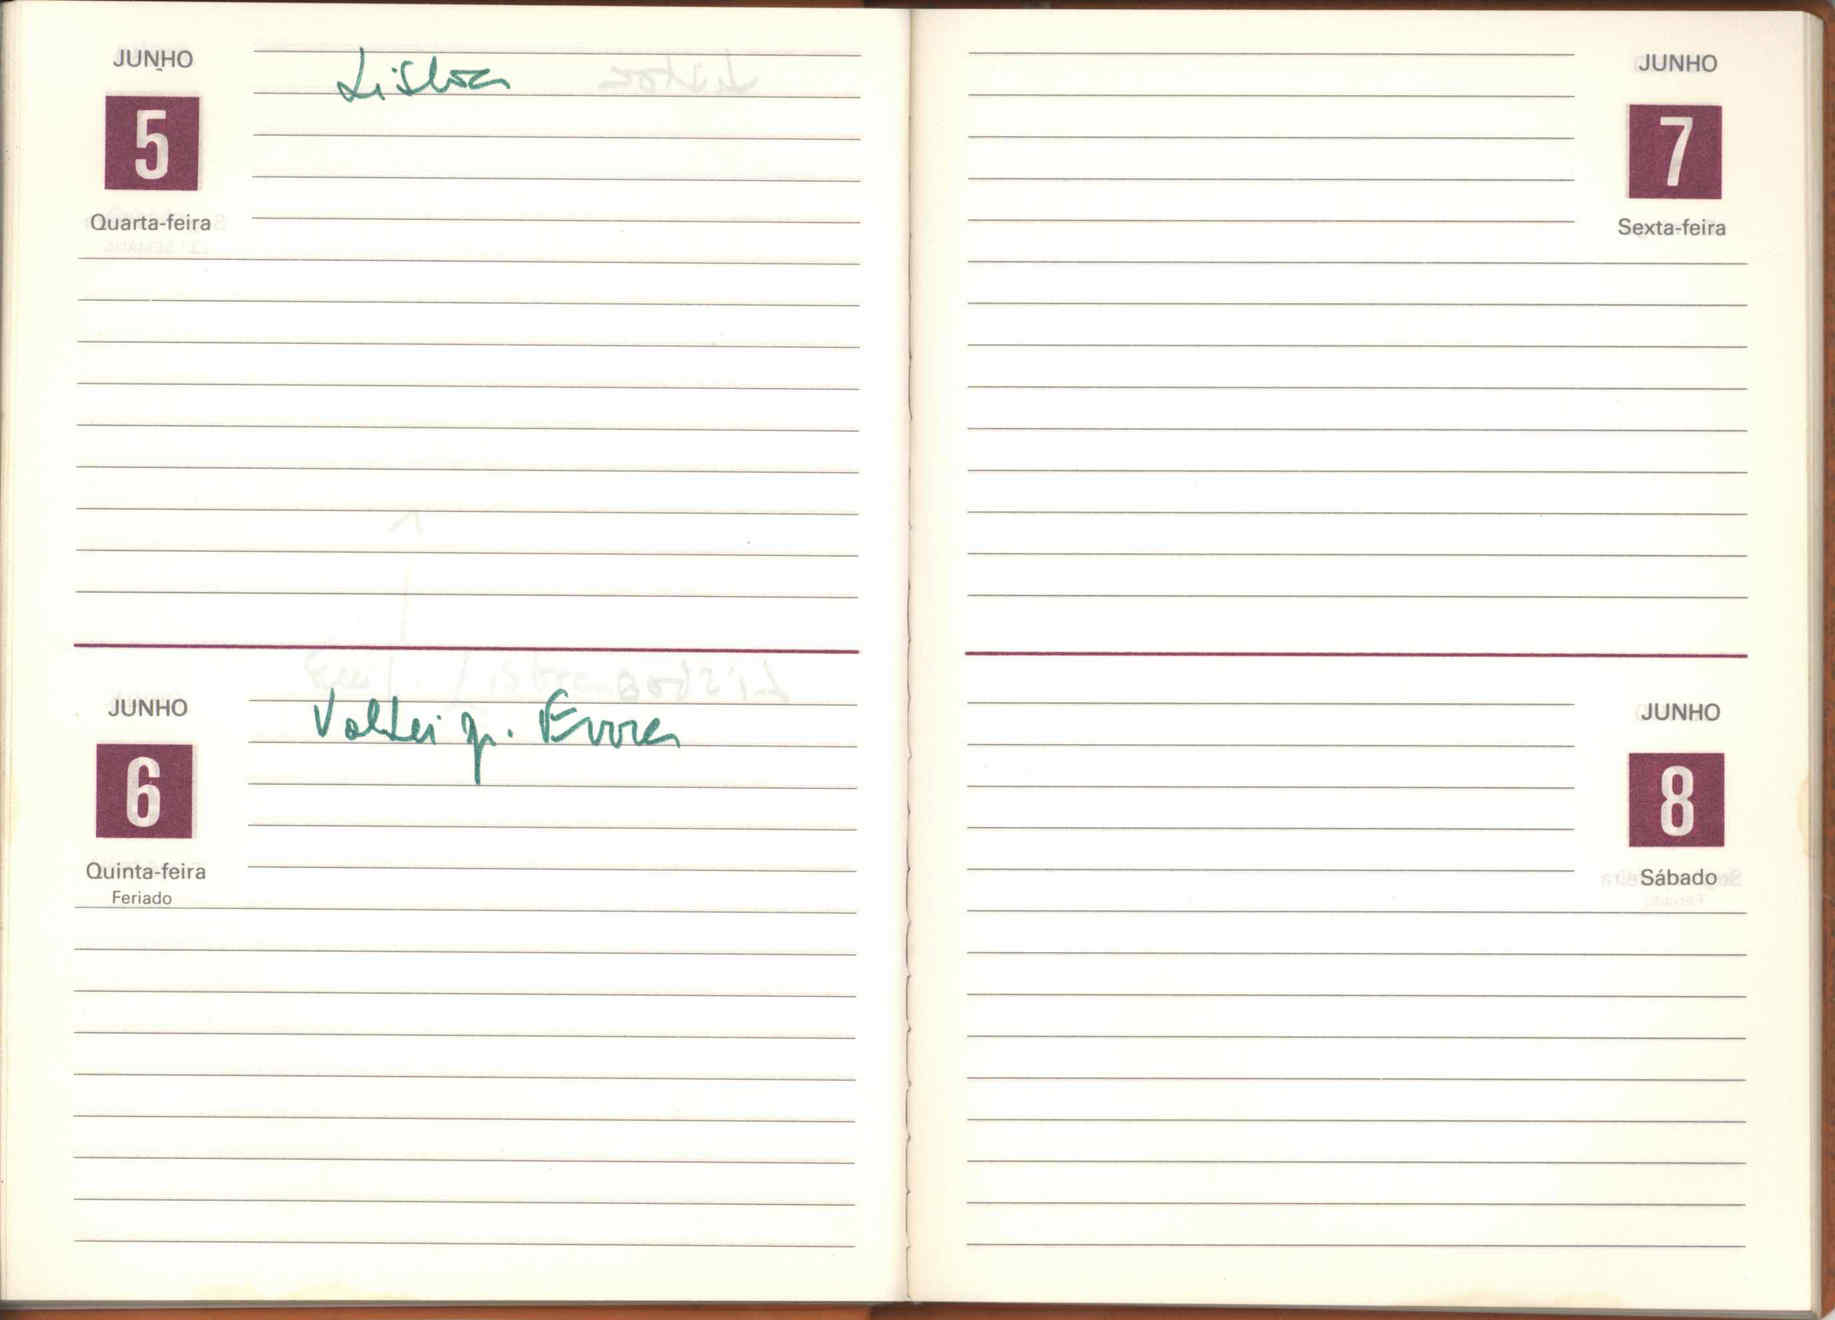 JUNHO
5
Quarta-feira
Lisboa
JUNHO
6
Quinta-feira
Feriado
Voltei p. Évora
JUNHO
7
Sexta-feira
JUNHO
8
Sábado